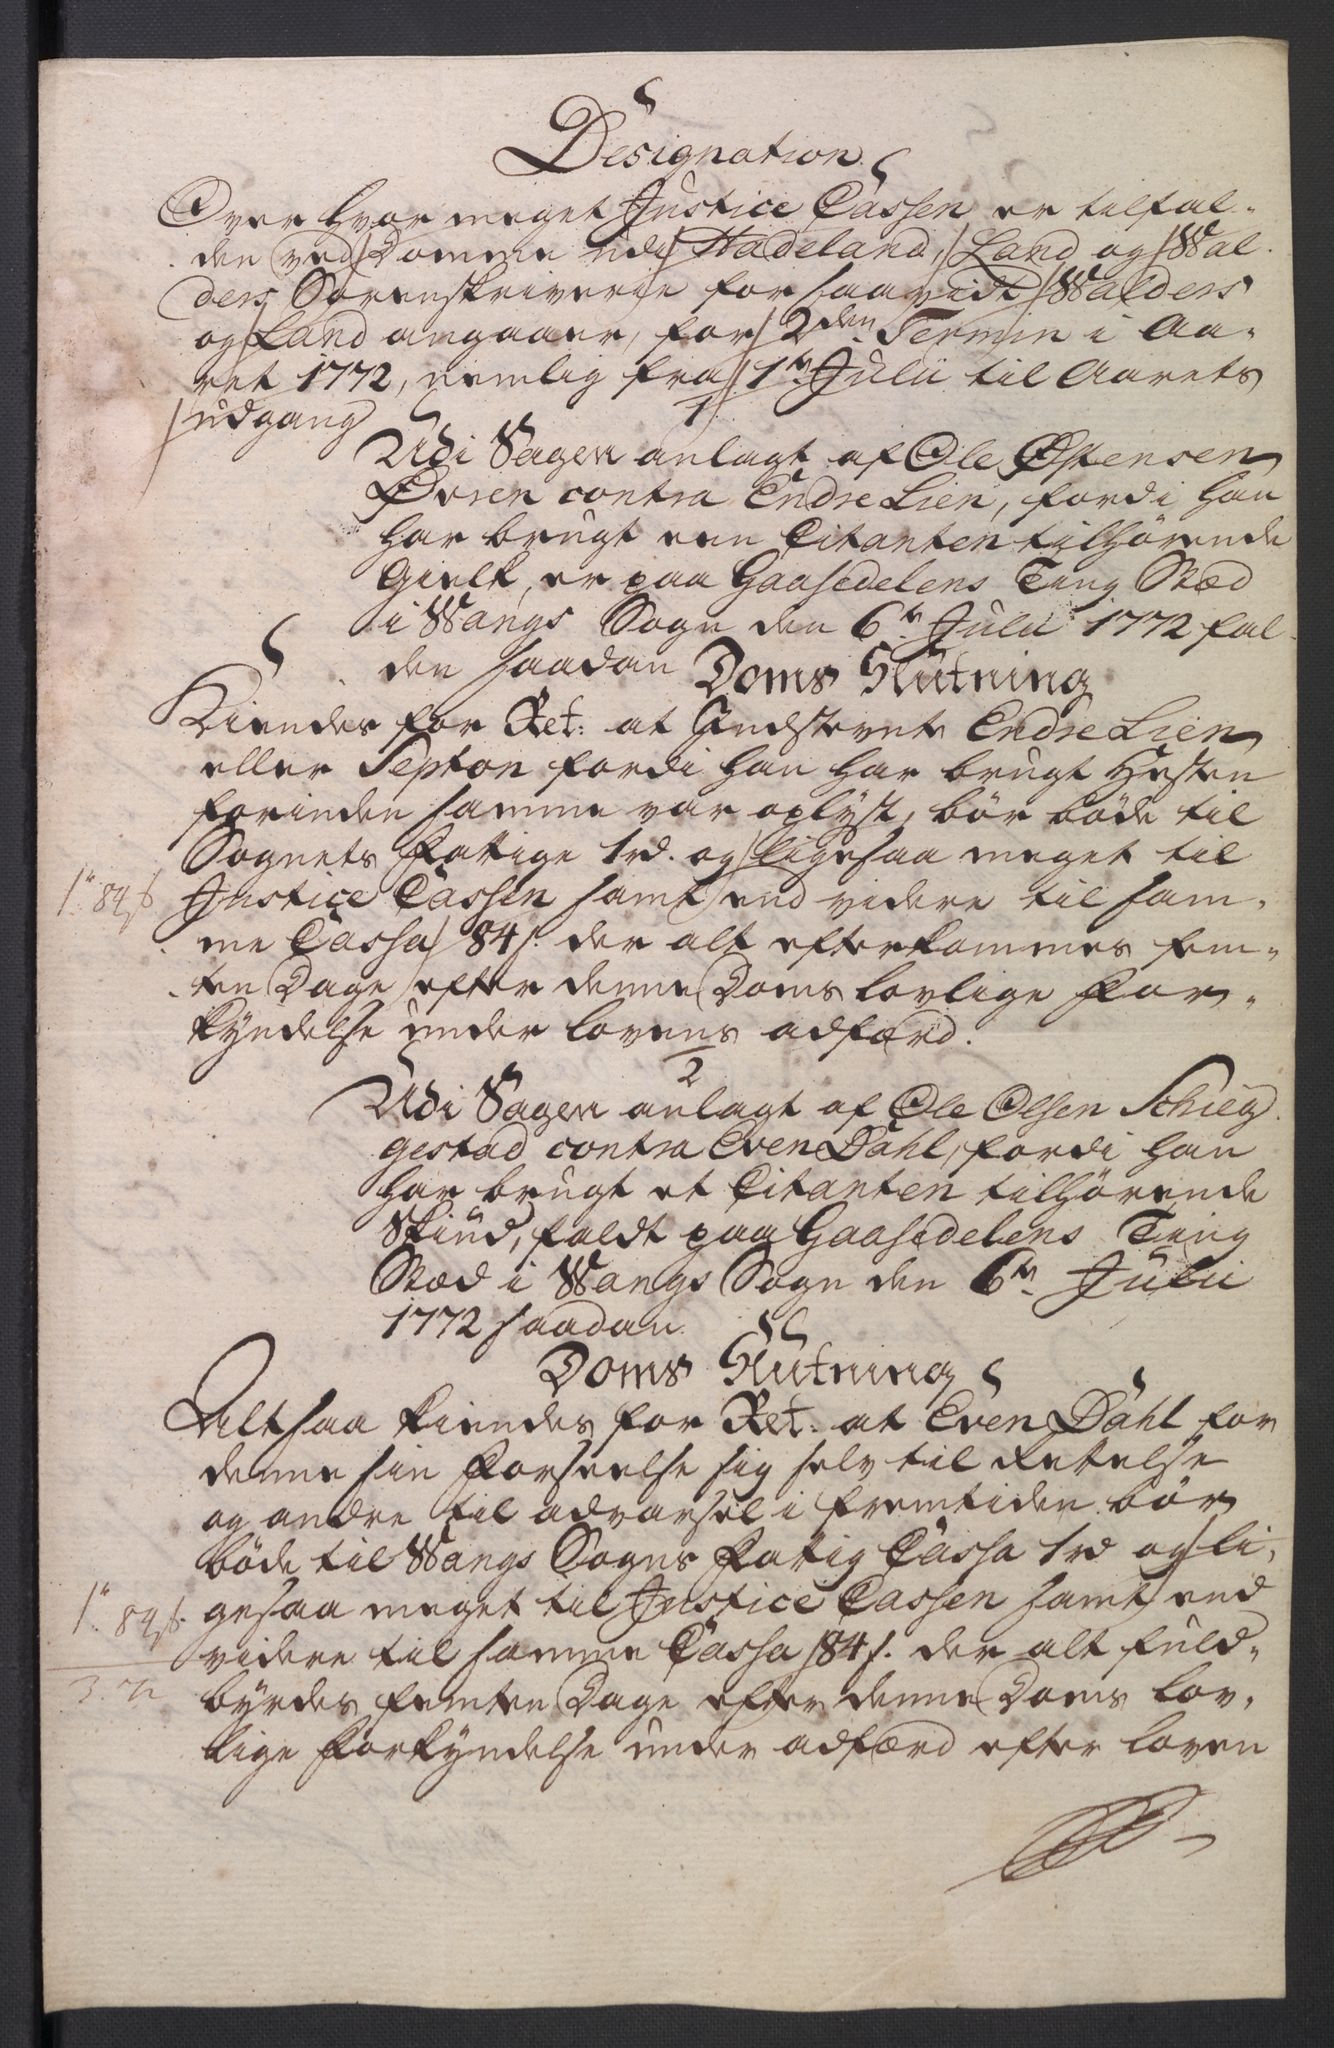 Designation
Over hvor meget Justice Cassen er tilfal-
den ved Domme udi Hadeland, Land og Wal-
ders Sorenskriverie for saavidt Walders
og Land angaaer, for 2den Termin i Aa-
ret 1772, nemlig fra 1te Julii til Aarets
udgang
1.
Udi Sagen anlagt af Ole Østensen
Øvren contra Endre Lien, fordi han
har brugt een Citanten tilhørende
Gielk, er paa Gaasedelens Ting Stæd
i Wangs Sogn den 6te Julii 1772 fal-
den saadan Doms Slutning
Kiendes for Ret: at Indstevnte Endre Lien
eller Septon fordi han har brugt Hesten
forinden samme var oplyst, bör böde til
Sognets Fattige 1 rd. og ligesaa meget til
1" 84 s Justice Cassen samt end videre til sam-
me Cassa 84 s. der alt efterkommes fem-
ten Dage efter denne Doms lovlige For-
kyndelse under lovens adfærd.
2
Udi Sagen anlagt af Ole Olsen Schieg-
gestad contra Even Dahl, fordi han
har brugt et Citanten tilhörende
Skind, faldt paa Gaasedelens Ting
Stæd i Wangs Sogn den 6te Julii
1772 saadan
Doms Slutning
Altsaa kiendes for Ret: at Even Dahl for
denne sin Forseelse sig selv til Rettelse
og andre til advarsel i fremtiden bör
böde til Wangs Sogns Fattig Cassa 1 rd og li-
1" 84 s. gesaa meget til Justice Cassen samt end
videre til samme Cassa 84 s. der alt fuld-
3. 72 byrdes femten Dage efter denne Doms lov-
lige Forkyndelse under adfærd efter loven